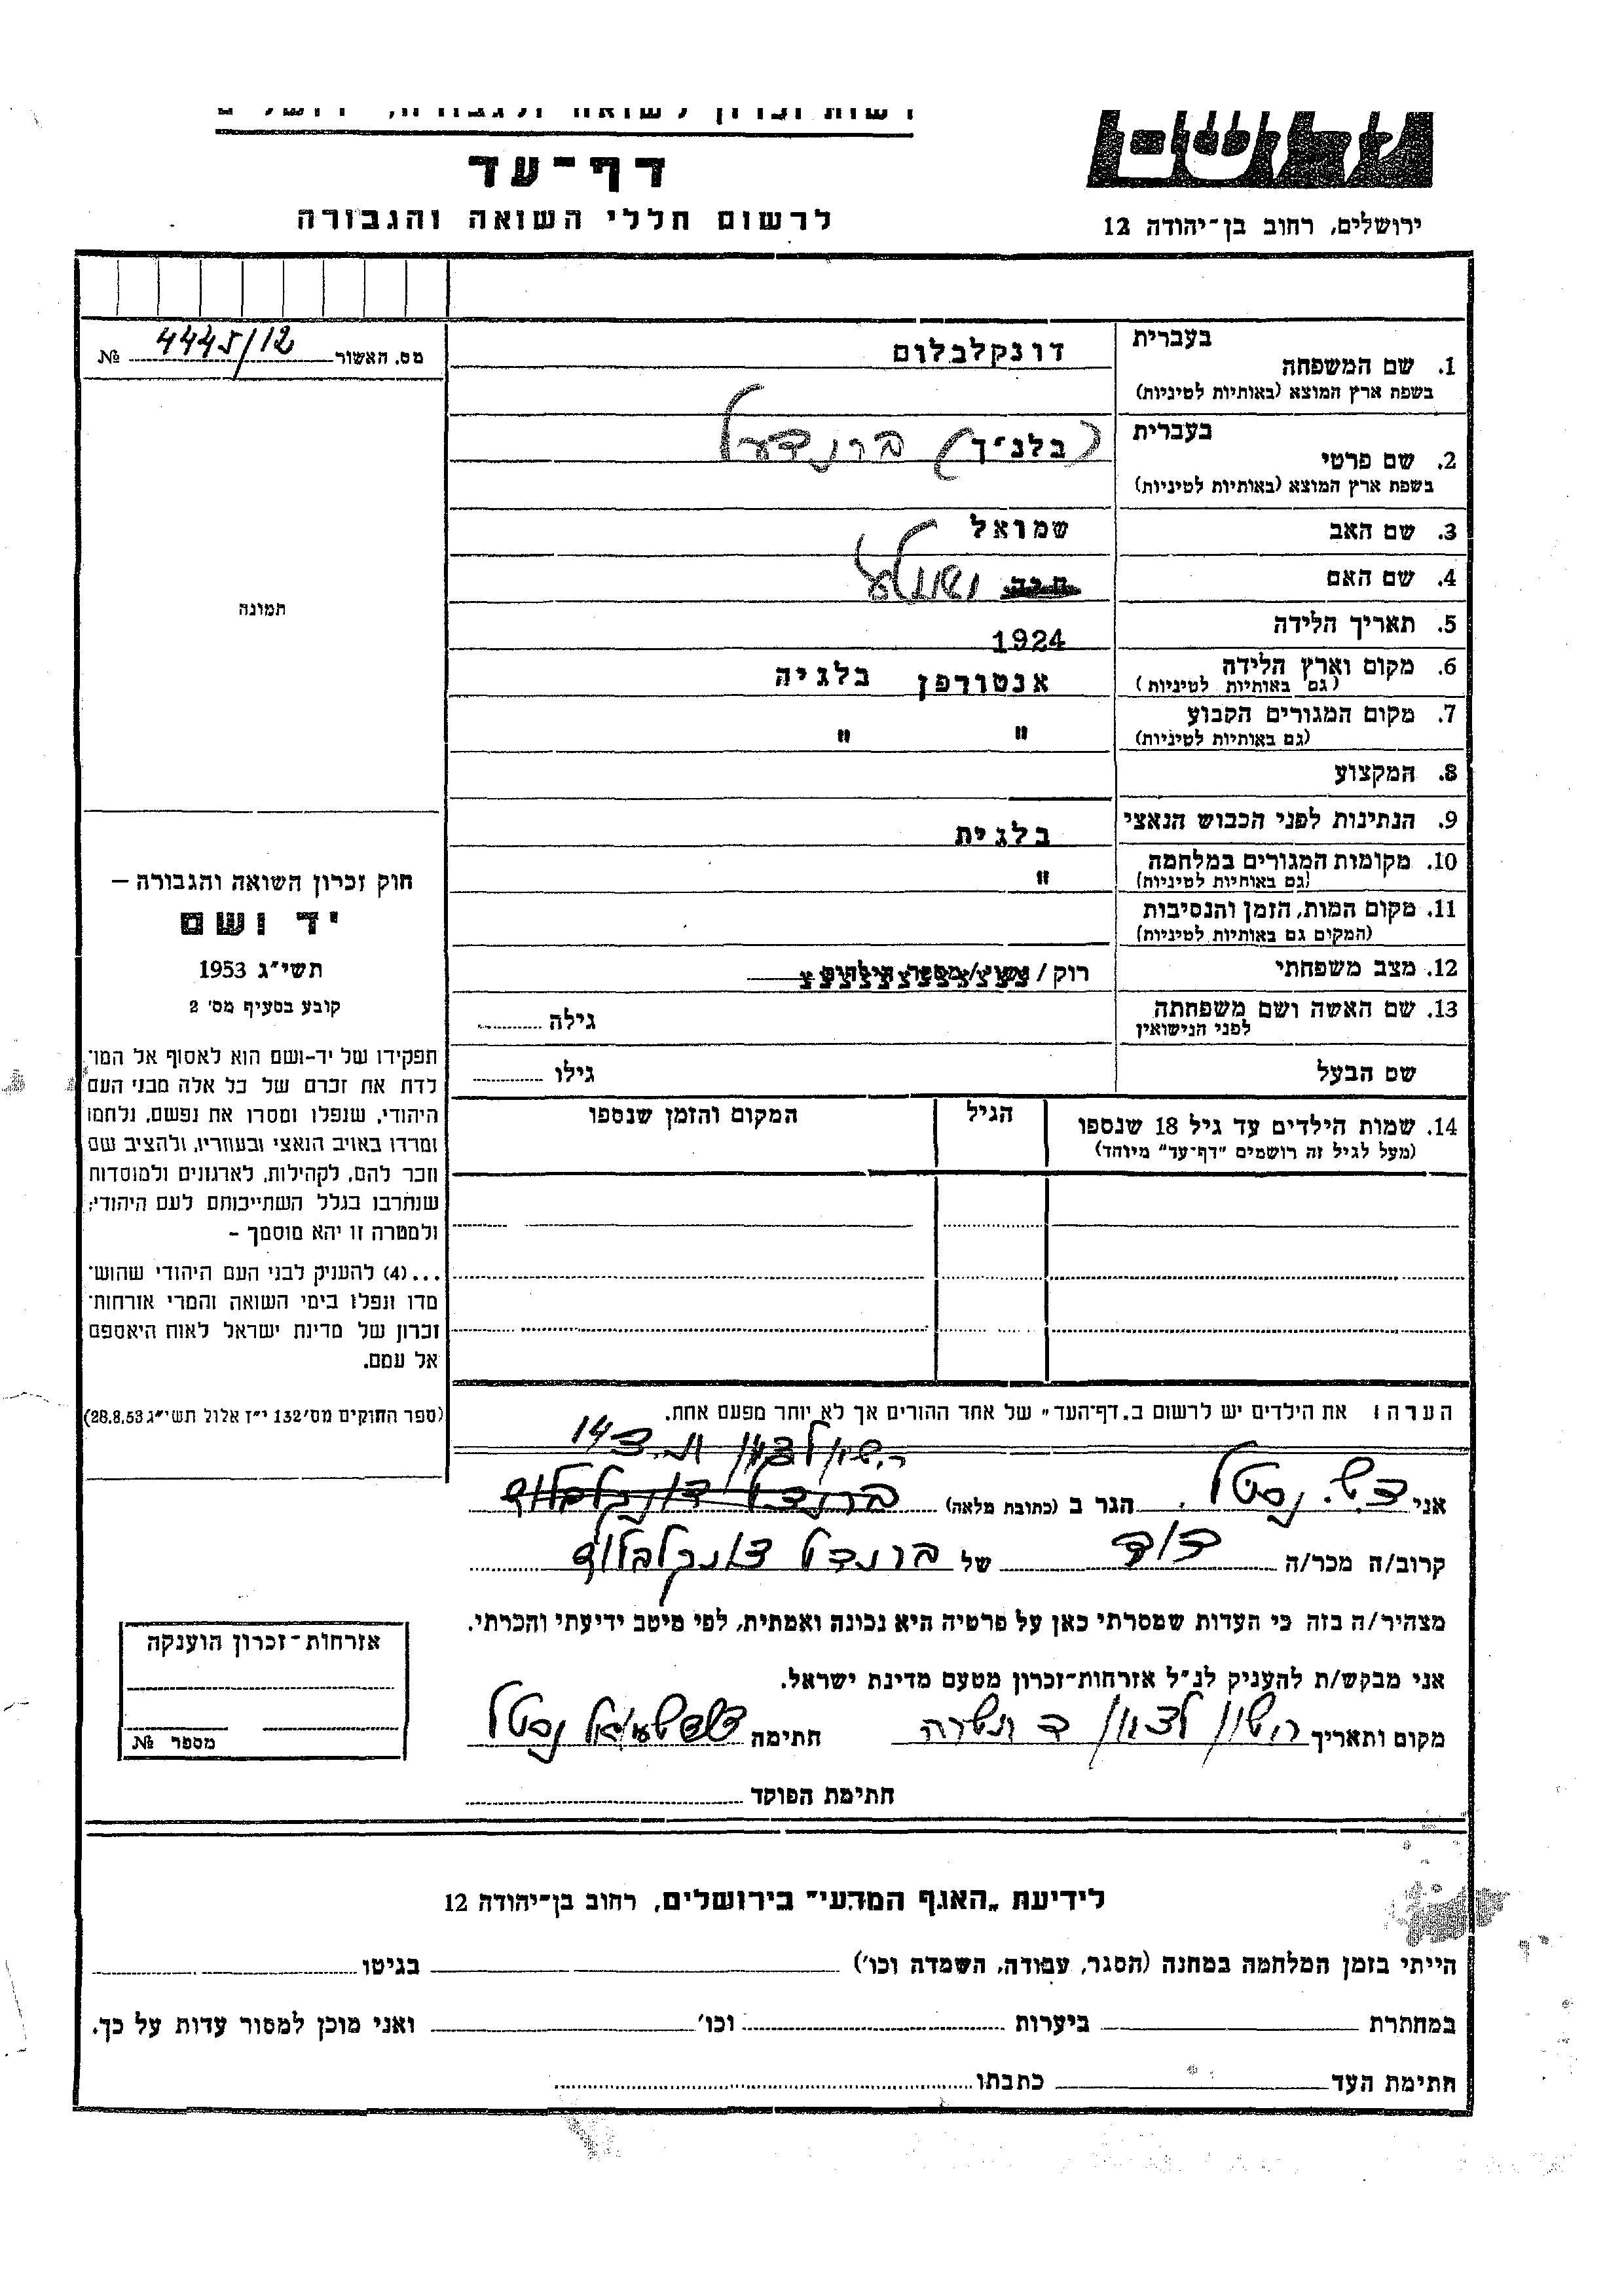 רשות זכרון לשואה ולגבורה, ירושלים
דף-עד
לרשום חללי השואה והגבורה
ידושם
ירושלים, רחוב בן-יהודה 12
מס. האשור 4445/12 №
תמונה
חוק זכרון השואה והגבורה –
יד ושם
תשי"ג 1953
קובע בסעיף מס' 2
תפקידו של יד-ושם הוא לאסוף אל המו־
לדת את זכרם של כל אלה מבני העם
היהודי, שנפלו ומסרו את נפשם, נלחמו
ומרדו באויב הנאצי ובעוזריו, ולהציב שם
וזכר להם, לקהילות, לארגונים ולמוסדות
שנחרבו בגלל השתייכותם לעם היהודי;
ולמטרה זו יהא מוסמך –
...(4) להעניק לבני העם היהודי שהוש־
מדו ונפלו בימי השואה והמרי אזרחות־
זכרון של מדינת ישראל לאות היאספם
אל עמם.
(ספר החוקים מס' 132 י"ז אלול תשי"ג 28.8.53)
1. שם המשפחה בעברית דונקלבלום
בשפת ארץ המוצא (באותיות לטיניות)
2. שם פרטי בעברית (בלנ'ך) ברנדעל
בשפת ארץ המוצא (באותיות לטיניות)
3. שם האב שמואל
4. שם האם חיה
5. תאריך הלידה 1924
6. מקום וארץ הלידה אנטורפן בלגיה
(גם באותיות לטיניות)
7. מקום המגורים הקבוע " "
(גם באותיות לטיניות)
8. המקצוע
9. הנתינות לפני הכבוש הנאצי בלגית
10. מקומות המגורים במלחמה "
(גם באותיות לטיניות)
11. מקום המות, הזמן והנסיבות
(המקום גם באותיות לטיניות)
12. מצב משפחתי רוק / נשוי / מספר הילדים
13. שם האשה ושם משפחתה גילה
לפני הנישואין
שם הבעל גילו
14. שמות הילדים עד גיל 18 שנספו הגיל המקום והזמן שנספו
(מעל לגיל זה רושמים "דף-עד" מיוחד)
הערה: את הילדים יש לרשום ב„דף-העד" של אחד ההורים אך לא יותר מפעם אחת.
ר.שון לציון ת.ד 14
אני ד.ש. נסטל הגר ב (כתובת מלאה) ברנדל דונקלבלום
קרוב/ה מכר/ה דוד של ברנדל דונקלבלום
מצהיר/ה בזה כי העדות שמסרתי כאן על פרטיה היא נכונה ואמתית, לפי מיטב ידיעתי והכרתי.
אני מבקש/ת להעניק לנ"ל אזרחות-זכרון מטעם מדינת ישראל.
מקום ותאריך ר.שון לציון חתימה נסטל
חתימת הפוקד
אזרחות-זכרון הוענקה
מספר №
לידיעת „האגף המדעי" בירושלים, רחוב בן-יהודה 12
הייתי בזמן המלחמה במחנה (הסגר, עבודה, השמדה וכו') בגיטו
במחתרת ביערות וכו' ואני מוכן למסור עדות על כך.
חתימת העד כתבתו